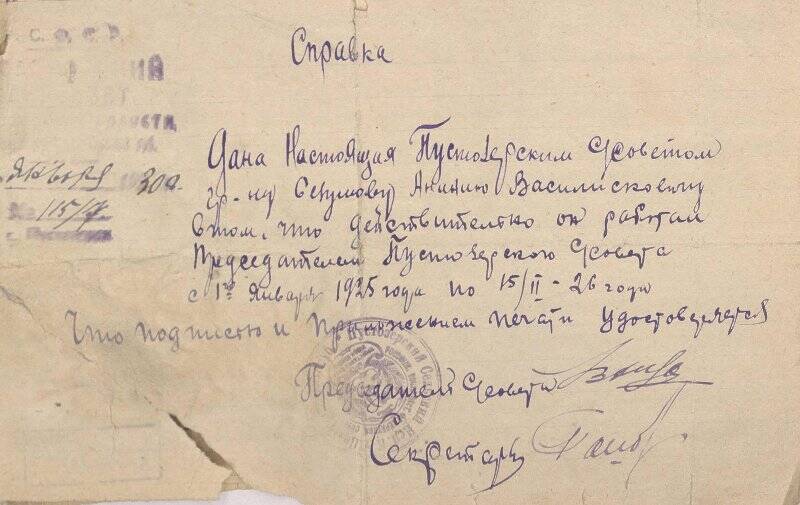 Справка
Р. С. Ф. С. Р.
января 30 г.
№ 115/7
Дана Настоящая Пустозерским Советом
гр-ну Ананию Васильсковичу
в том, что действительно он работал
Председателем Пустозерского Совета
с 1го Января 1925 года по 15/II - 26 года
Что подписью и приложением печати удостоверяется
Председатель Совета
Секретарь